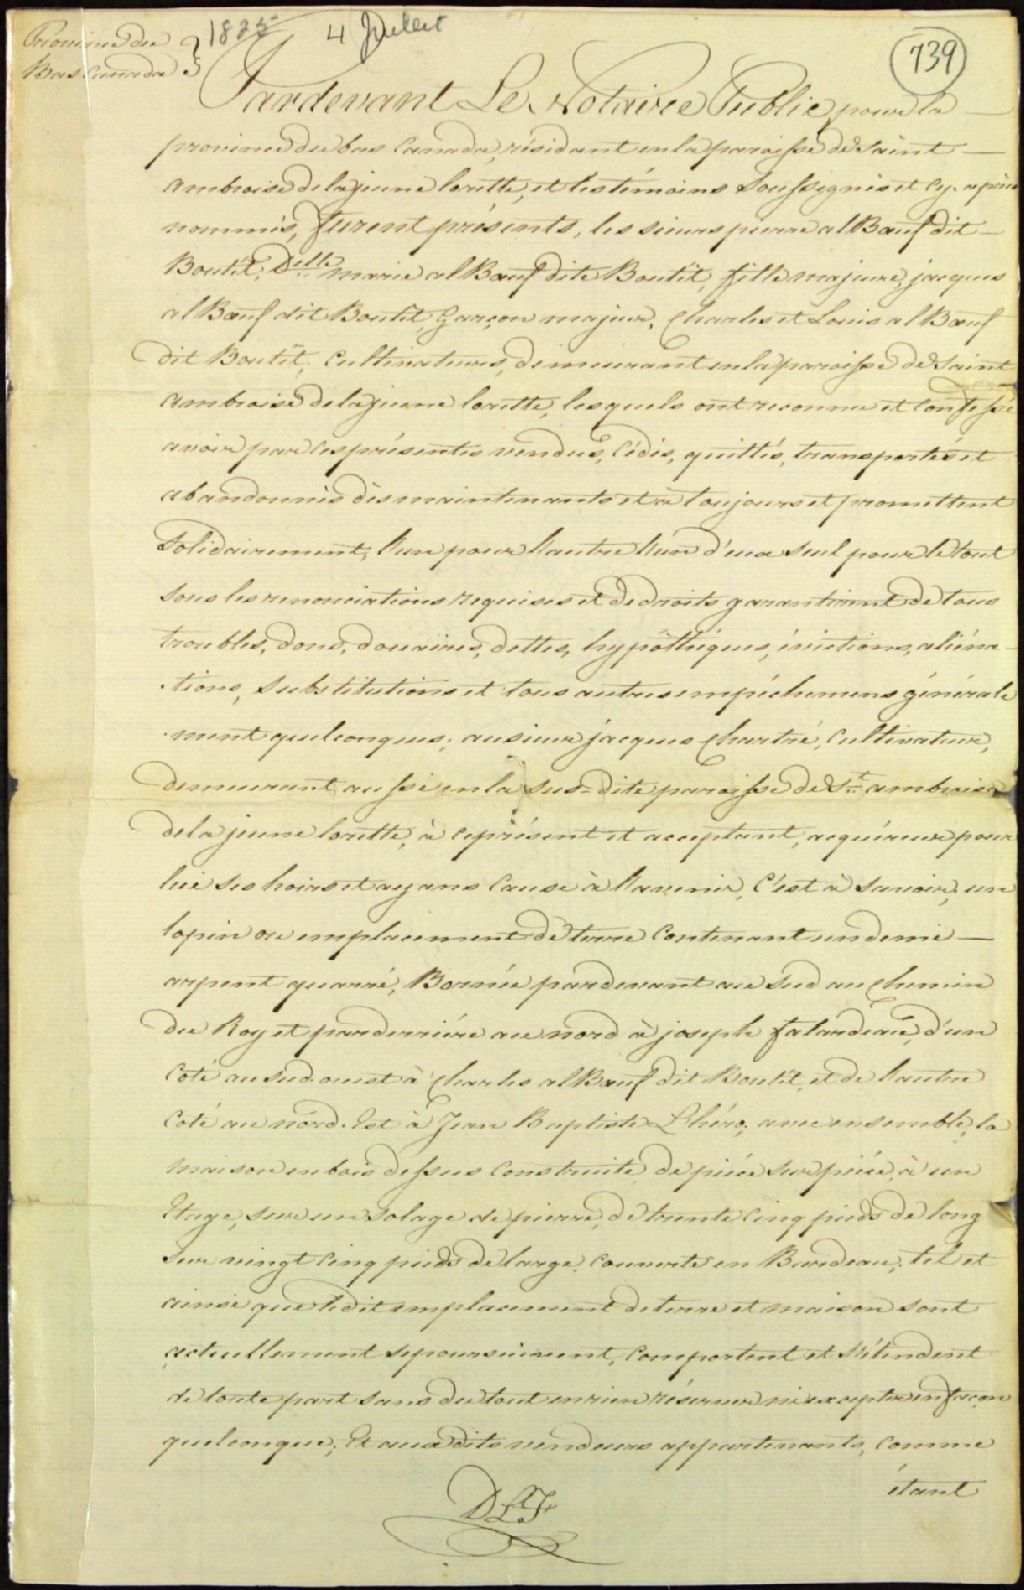 Province du
Bas Canada
1825 4 Juillet
739
Pardevant Le Notaire Public pour la
province du bas Canada, résidant en la paroisse de Saint
ambroise de la jeune lorette, et les témoins Soussignés et cy-après
nommés, furent présents, les sieurs pierre alBœuf dit
Boutêt, Delle marie alBœuf dite Boutêt, fille majeure, jacques
alBœuf dit Boutêt Garçon majeur, Charles et Louis alBœuf
dit Boutêt, Cultivateurs, demeurant en la paroisse de Saint
ambroise de la jeune lorette, lesquels ont reconnu et Confessé
avoir par ces présentes vendus, Cédés, quittés, transportés et
abandonnés dès maintenants et à toujours et promettent
Solidairement, l'un pour l'autre l'un d'eux seul pour le tout
sous les renonciations requises et de droits garantirent de tous
troubles, dons, douaires, dettes, hypôthéques, évictions, aliéna-
-tions, Substitutions et tous autres empéchemens générale
-ment quelconques; au sieur jacques Chartré, Cultivateur,
demeurant aussi en la sus-dite paroisse de St ambroise
de la jeune lorette, à ce présent et acceptant, acquéreur pour
lui ses hoirs et ayans Cause à l'avenir, C'est à Savoir, un
lopin ou emplacement de terre Contenant un demi
arpent quarré, Bornée pardevant au sud au Chemin
du Roy et parderriére au nord à joseph falardeau, d'un
Coté au sud ouest à Charles alBœuf dit Boutêt, et de l'autre
Coté au nord-Est à Jean Baptiste Lhéro, avec ensemble, la
maison en bois dessus Construite, de piéce sur piéce, à un
Etage, sur un Solage de pierre, de trente Cinq pieds de long
sur vingt Cinq pieds de large, Couverte en Bardeau, tel et
ainsi que ledit emplacement de terre et maison sont
actuellement se poursuivent, Comportent et S'étendent
de toute part sans du tout en rien réserver ni excepter en façon
quelconque, Et aux dits vendeurs appartenants, Comme
étant